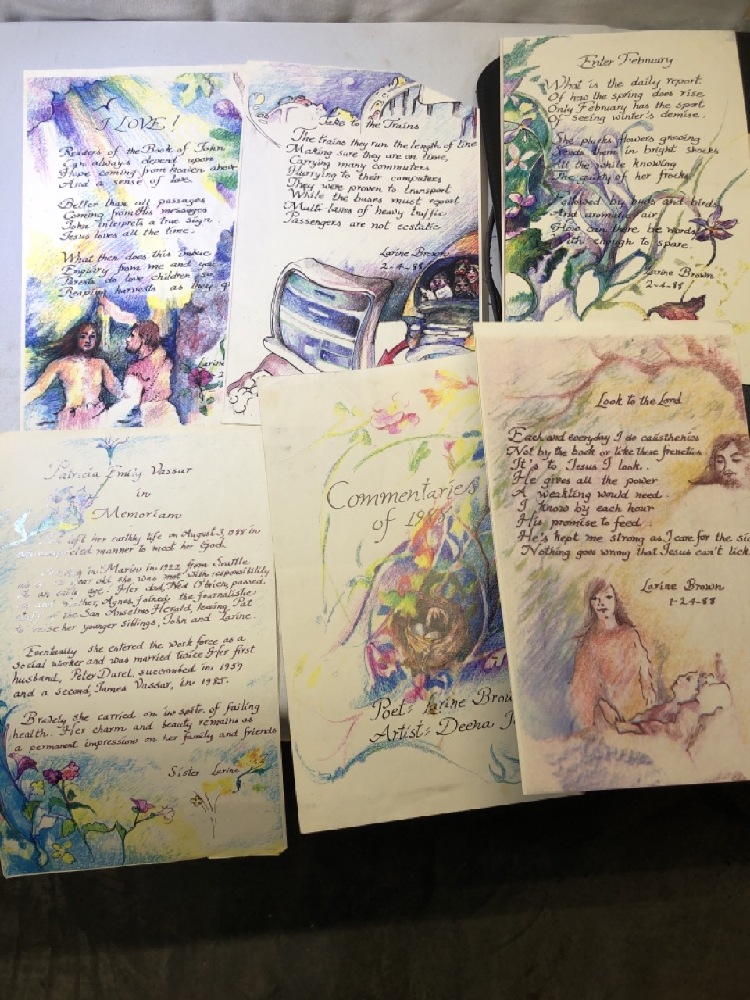 I LOVE!
Readers of the Book of John
Can always depend upon
Hope coming from Heaven above
And a sense of love.
Better than all passages
Coming from this messages
John interprets a true sign
Jesus loves all the time.
What then does this imbue
Enquiry from me and you
Parents do love children
Reaping harvests as they
Larine
Take to the Trains
The trains they run the length of line
Making sure they are on time,
Carrying many commuters
Hurrying to their computers
They were proven to transport
While the buses must report
Multi lanes of heavy traffic
Passengers are not ecstatic
Larine Brown
2-4-88
Enter February
What is the daily report
Of how the spring does rise
Only February has the sport
Of seeing winter's demise.
She plucks flowers growing
them in bright shocks
All the while knowing
The quality of her frocks
Followed by buds and birds
And aromatic air
How can there be words
With enough to spare.
Larine Brown
2-4-88
Patricia Emily Vassar
in
Memoriam
left her earthly life on August 3, 1988 in
manner to meet her God.
in Marin in 1922 from Seattle
year old she was met with responsibility
at an early age. Her dad, Ned O'Brien, passed
and mother, Agnes, the journalistic
of the San Anselmo Herald, leaving Pat
to raise her younger siblings, John and Larine.
Eventually she entered the work force as a
social worker and was married twice. Her first
husband, Peter Darel, succumbed in 1959
and a second, James Vassar, in 1985.
Bravely she carried on in spite of failing
health. Her charm and beauty remains as
a permanent impression on her family and friends
Sister Larine
Commentaries
of 1988
Poet: Larine Brow
Artist: Deena
Look to the Lord
Each and everyday I do calisthenics
Not by the book or like these frenetics.
It's to Jesus I look.
He gives all the power
A weakling would need.
I know by each hour
His promise to feed.
He's kept me strong as I care for the sic
Nothing goes wrong that Jesus can't lick
Larine Brown
1-24-88